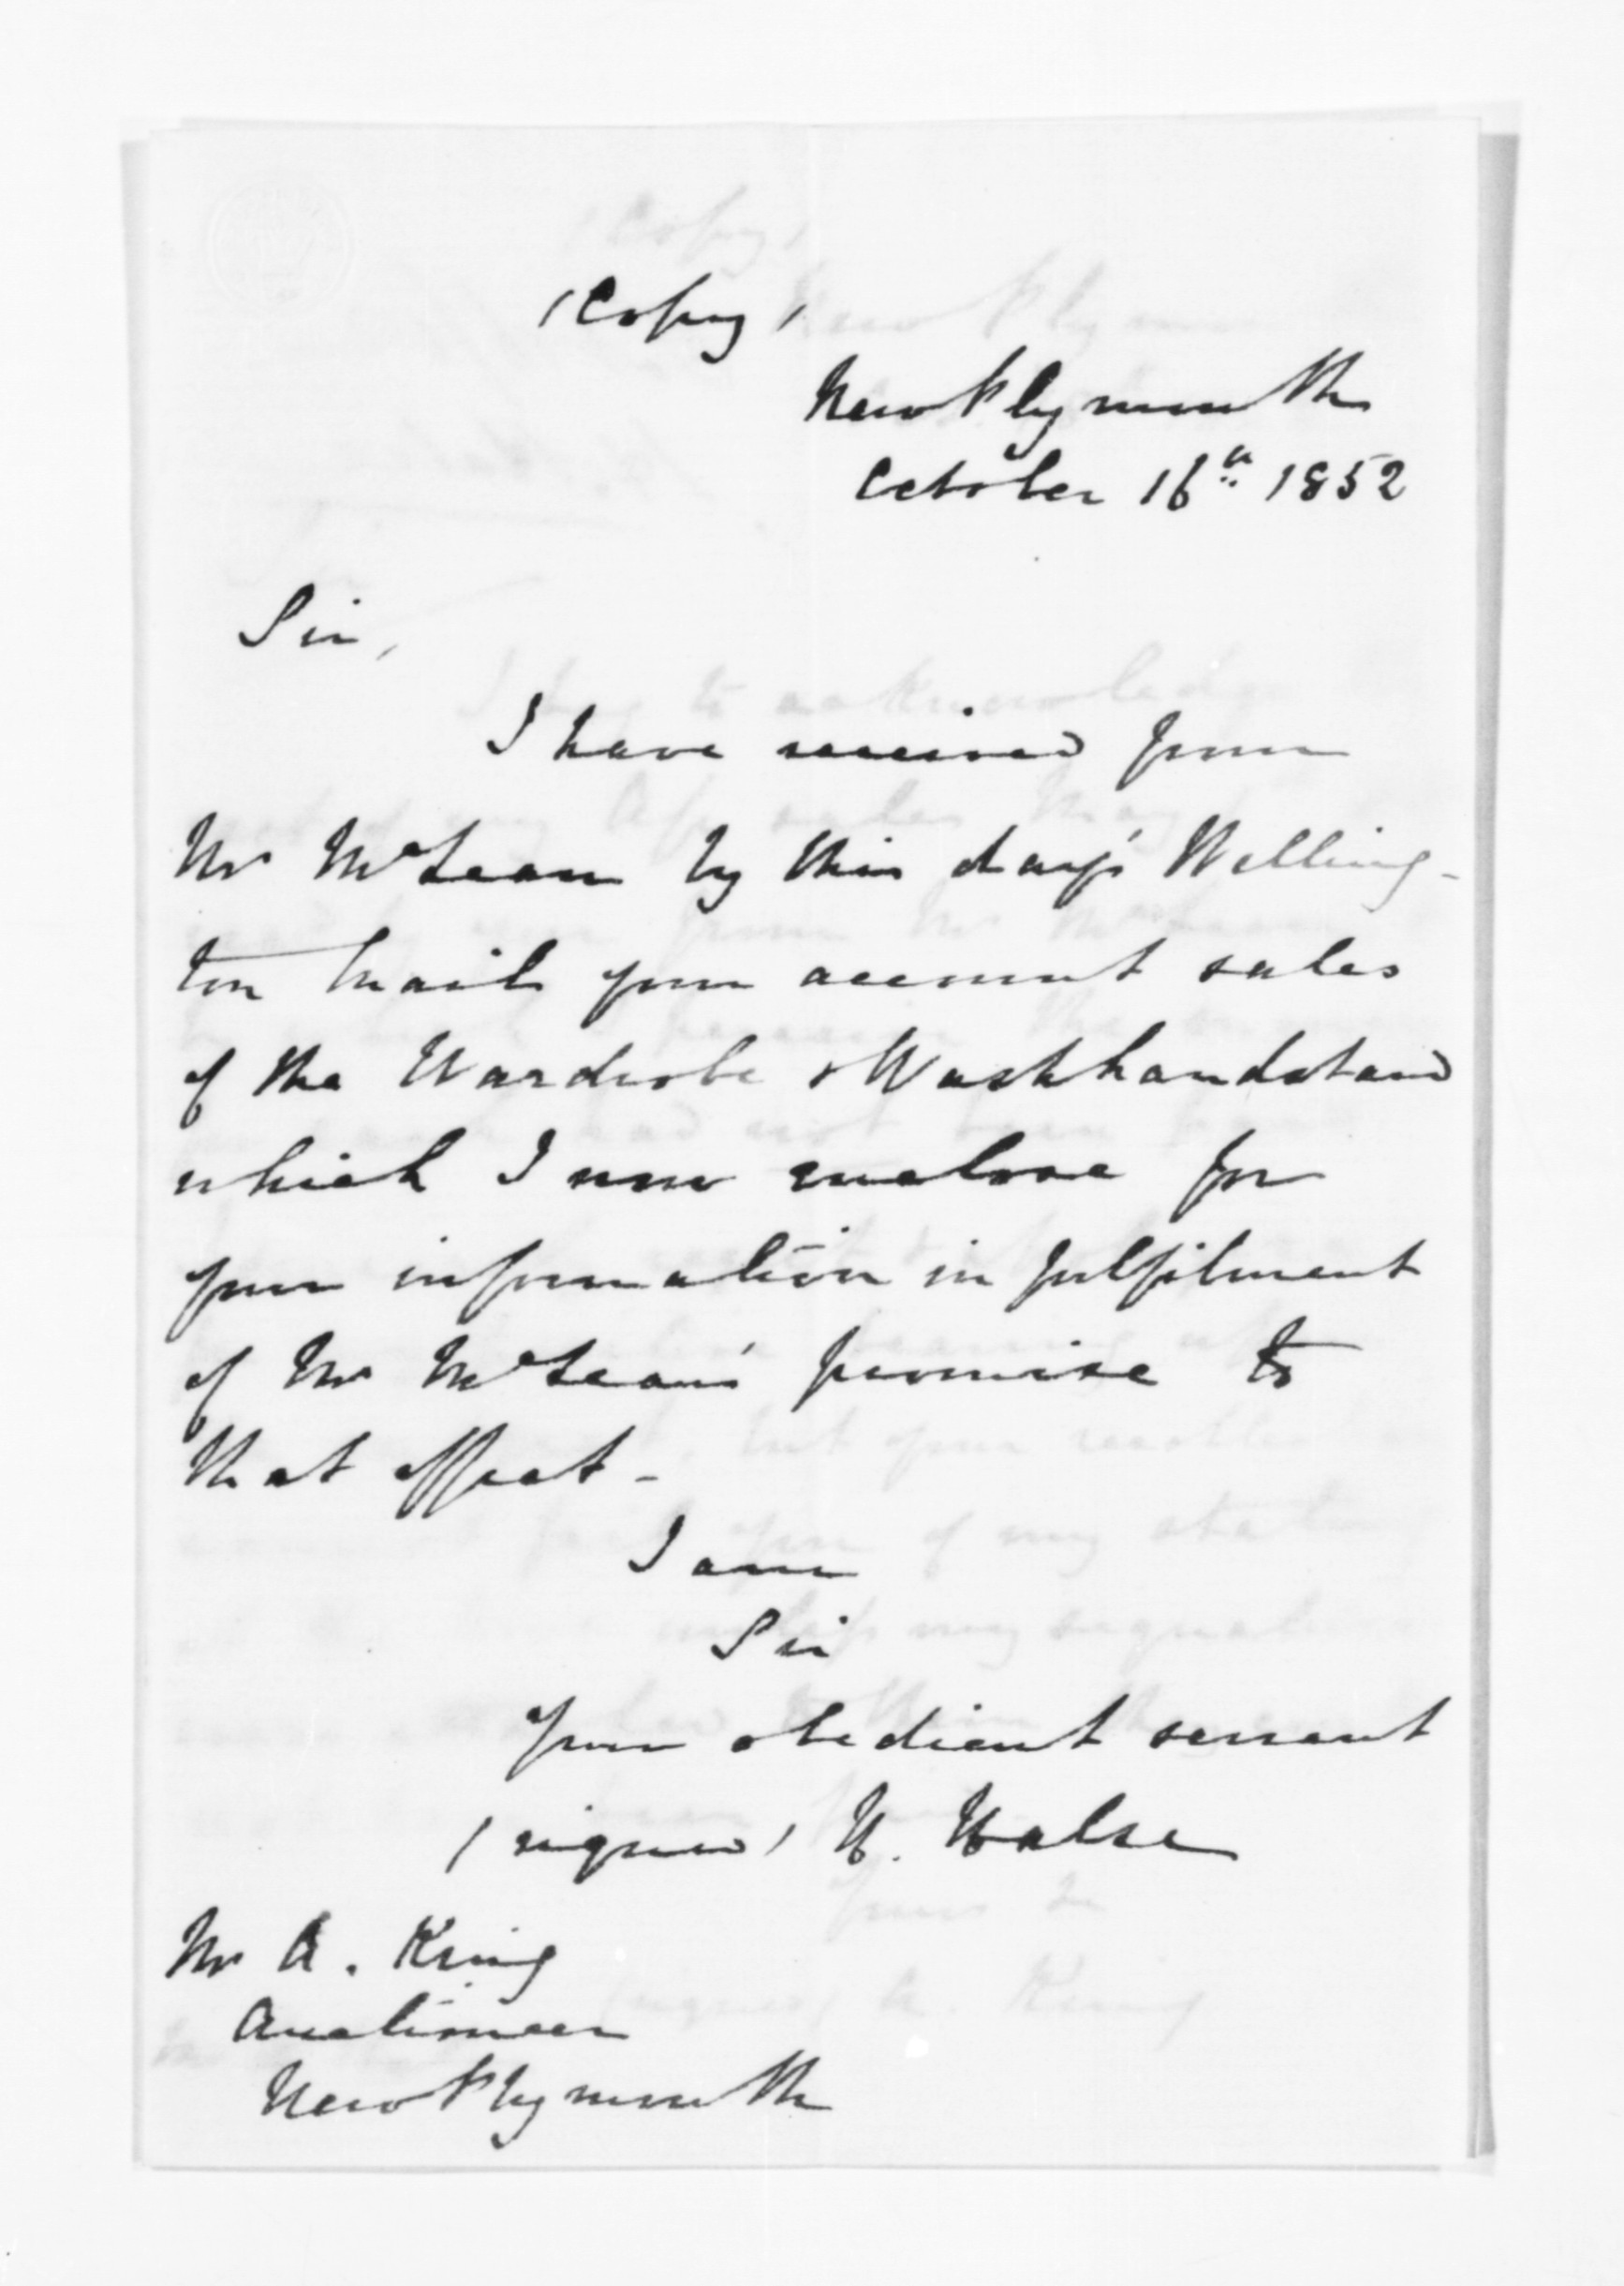 (Copy)
New Plymouth
October 16th 1852
Sir,
I have received from
Mr McLean by this day's Welling-
ton Mail your account sales
of the Wardrobe & Washhandstand
which I now enclose for
your information in fulfilment
of Mr McLean's promise to
that effect -
I am
Sir
your obedient servant
(signed) H. Halse
Mr A. King
Auctioneer
New Plymouth